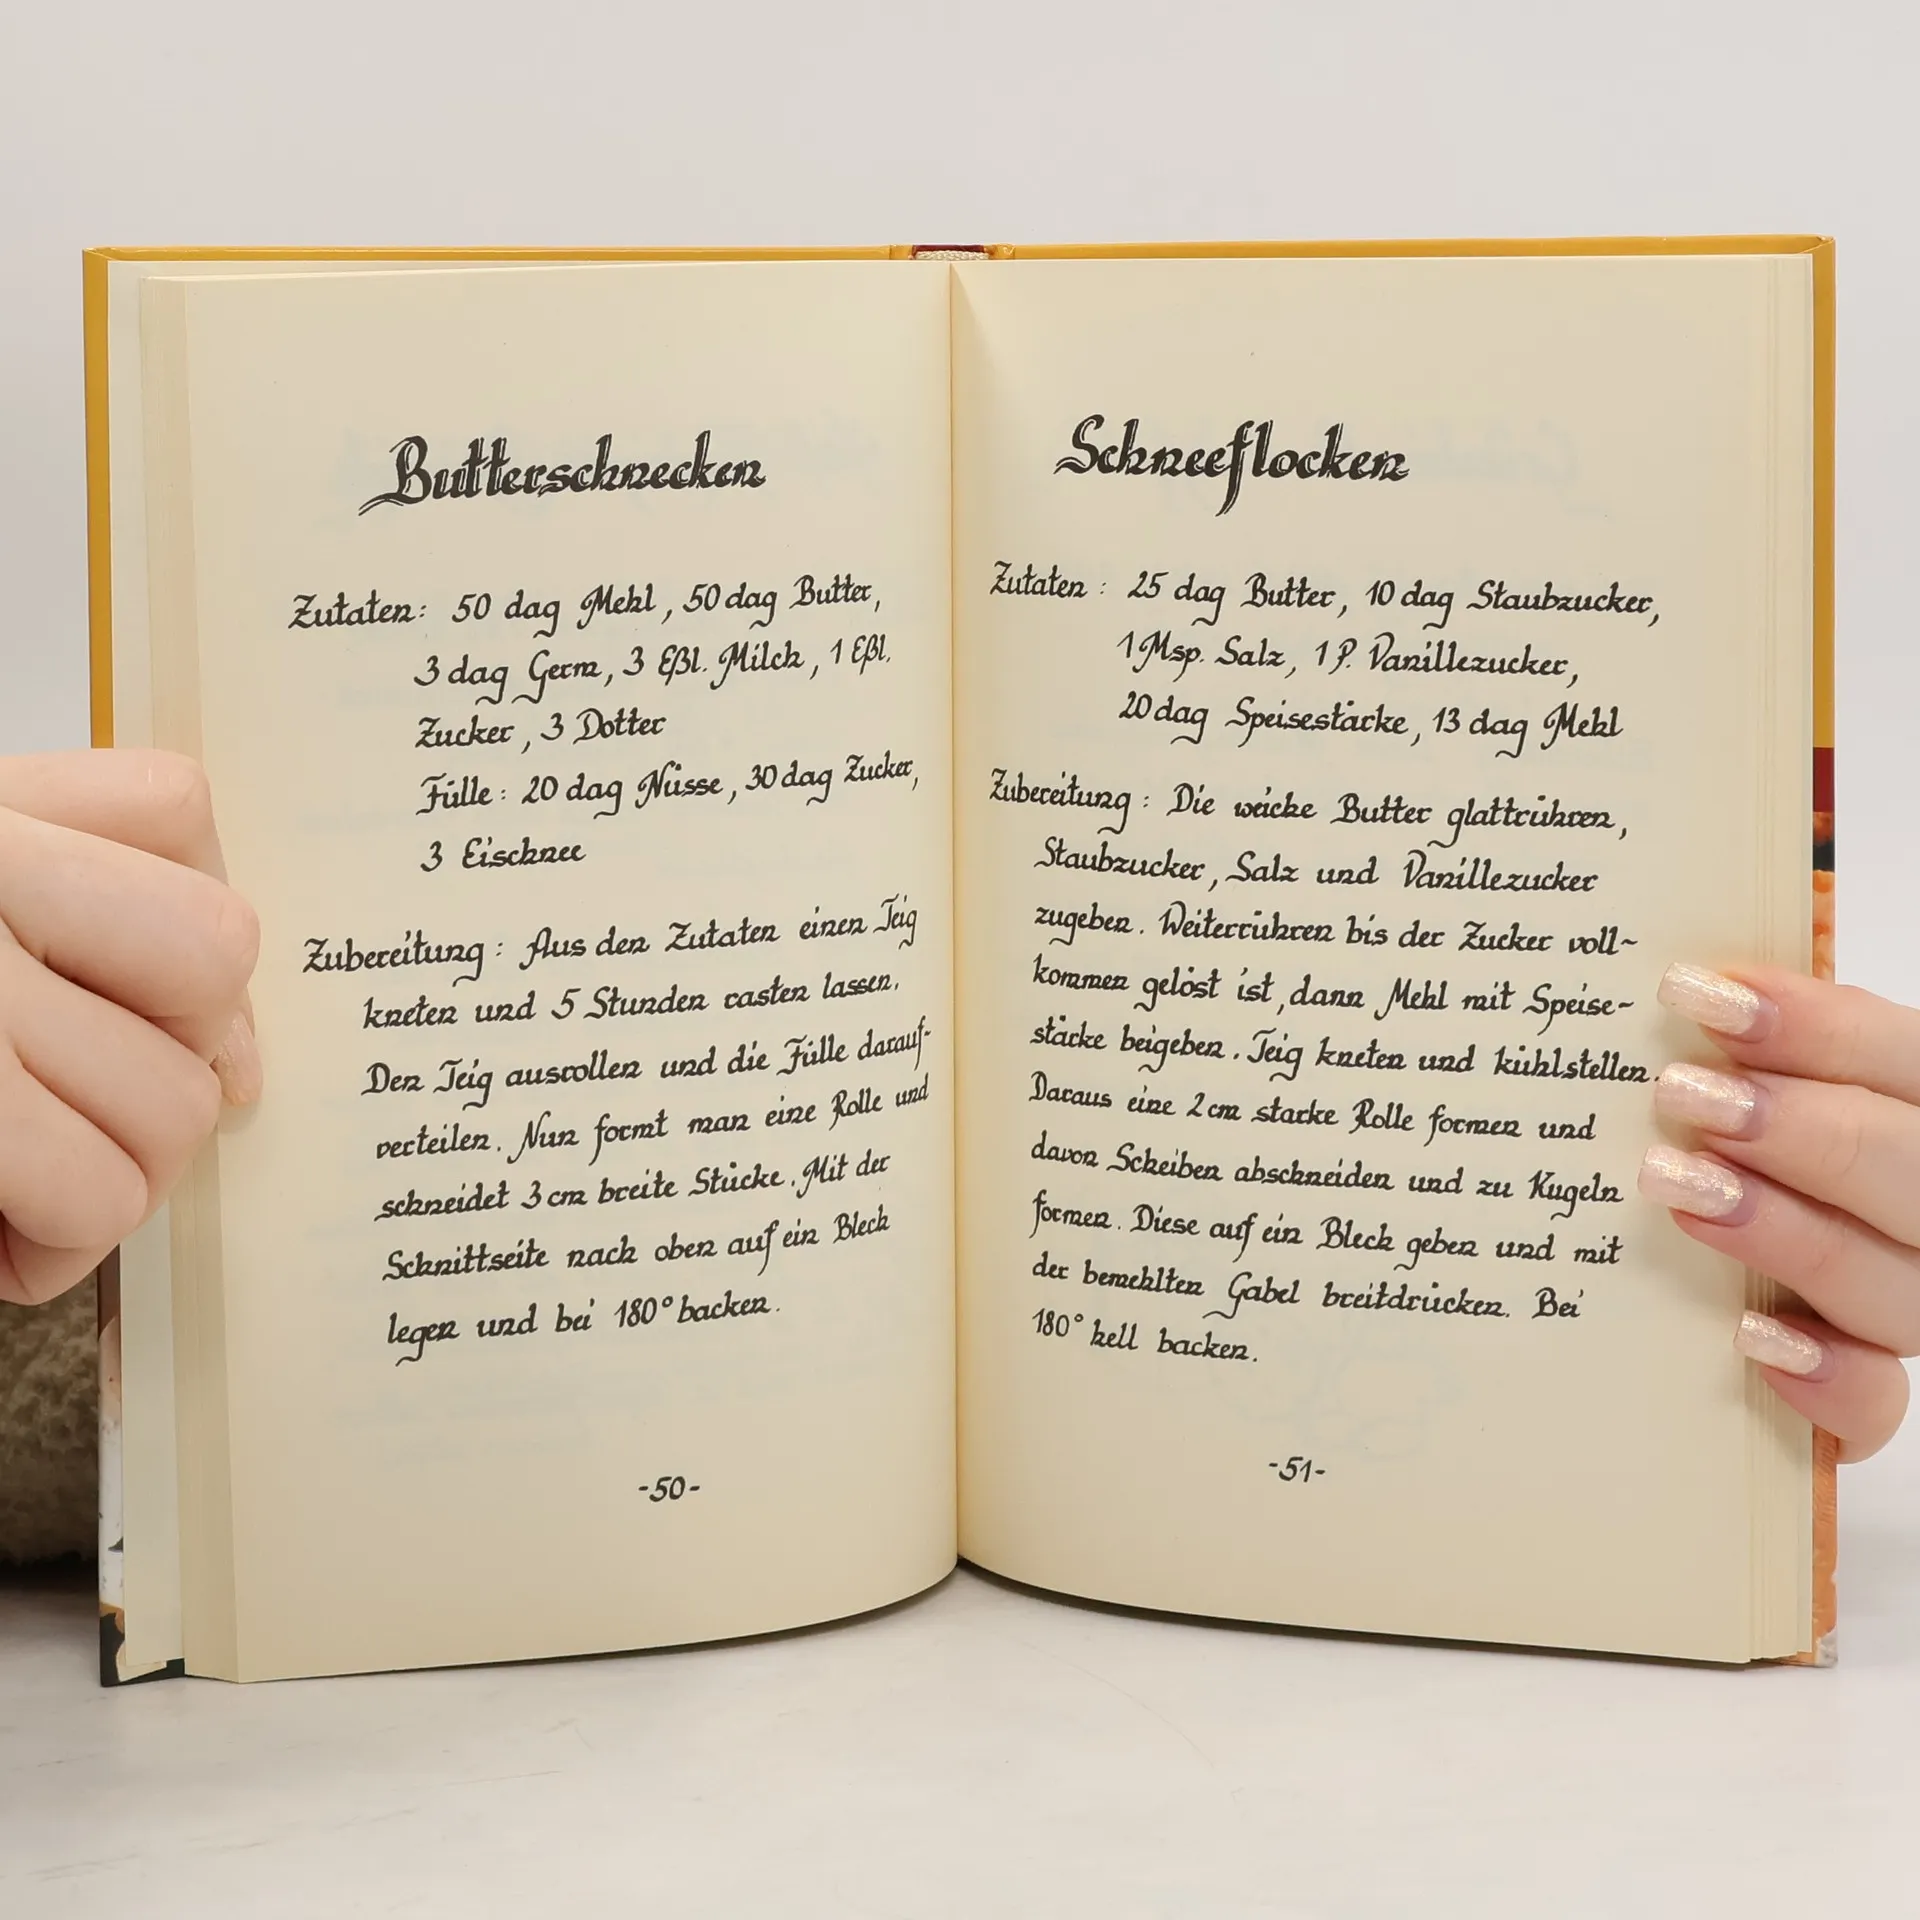 Butterschnecken
Zutaten: 50 dag Mehl, 50 dag Butter,
3 dag Germ, 3 Eßl. Milch, 1 Eßl.
Zucker, 3 Dotter
Fülle: 20 dag Nüsse, 30 dag Zucker,
3 Eischnee
Zubereitung: Aus den Zutaten einen Teig
kneten und 5 Stunden rasten lassen.
Den Teig ausrollen und die Fülle darauf-
verteilen. Nun formt man eine Rolle und
schneidet 3 cm breite Stücke. Mit der
Schnittseite nach oben auf ein Blech
legen und bei 180° backen.
-50-
Schneeflocken
Zutaten: 25 dag Butter, 10 dag Staubzucker,
1 Msp. Salz, 1 P. Vanillezucker,
20 dag Speisestärke, 13 dag Mehl
Zubereitung: Die weiche Butter glattrühren,
Staubzucker, Salz und Vanillezucker
zugeben. Weiterrühren bis der Zucker voll~
kommen gelöst ist, dann Mehl mit Speise~
stärke beigeben. Teig kneten und kühlstellen.
Daraus eine 2 cm starke Rolle formen und
davon Scheiben abschneiden und zu Kugeln
formen. Diese auf ein Blech geben und mit
der bemehlten Gabel breitdrücken. Bei
180° hell backen.
-51-